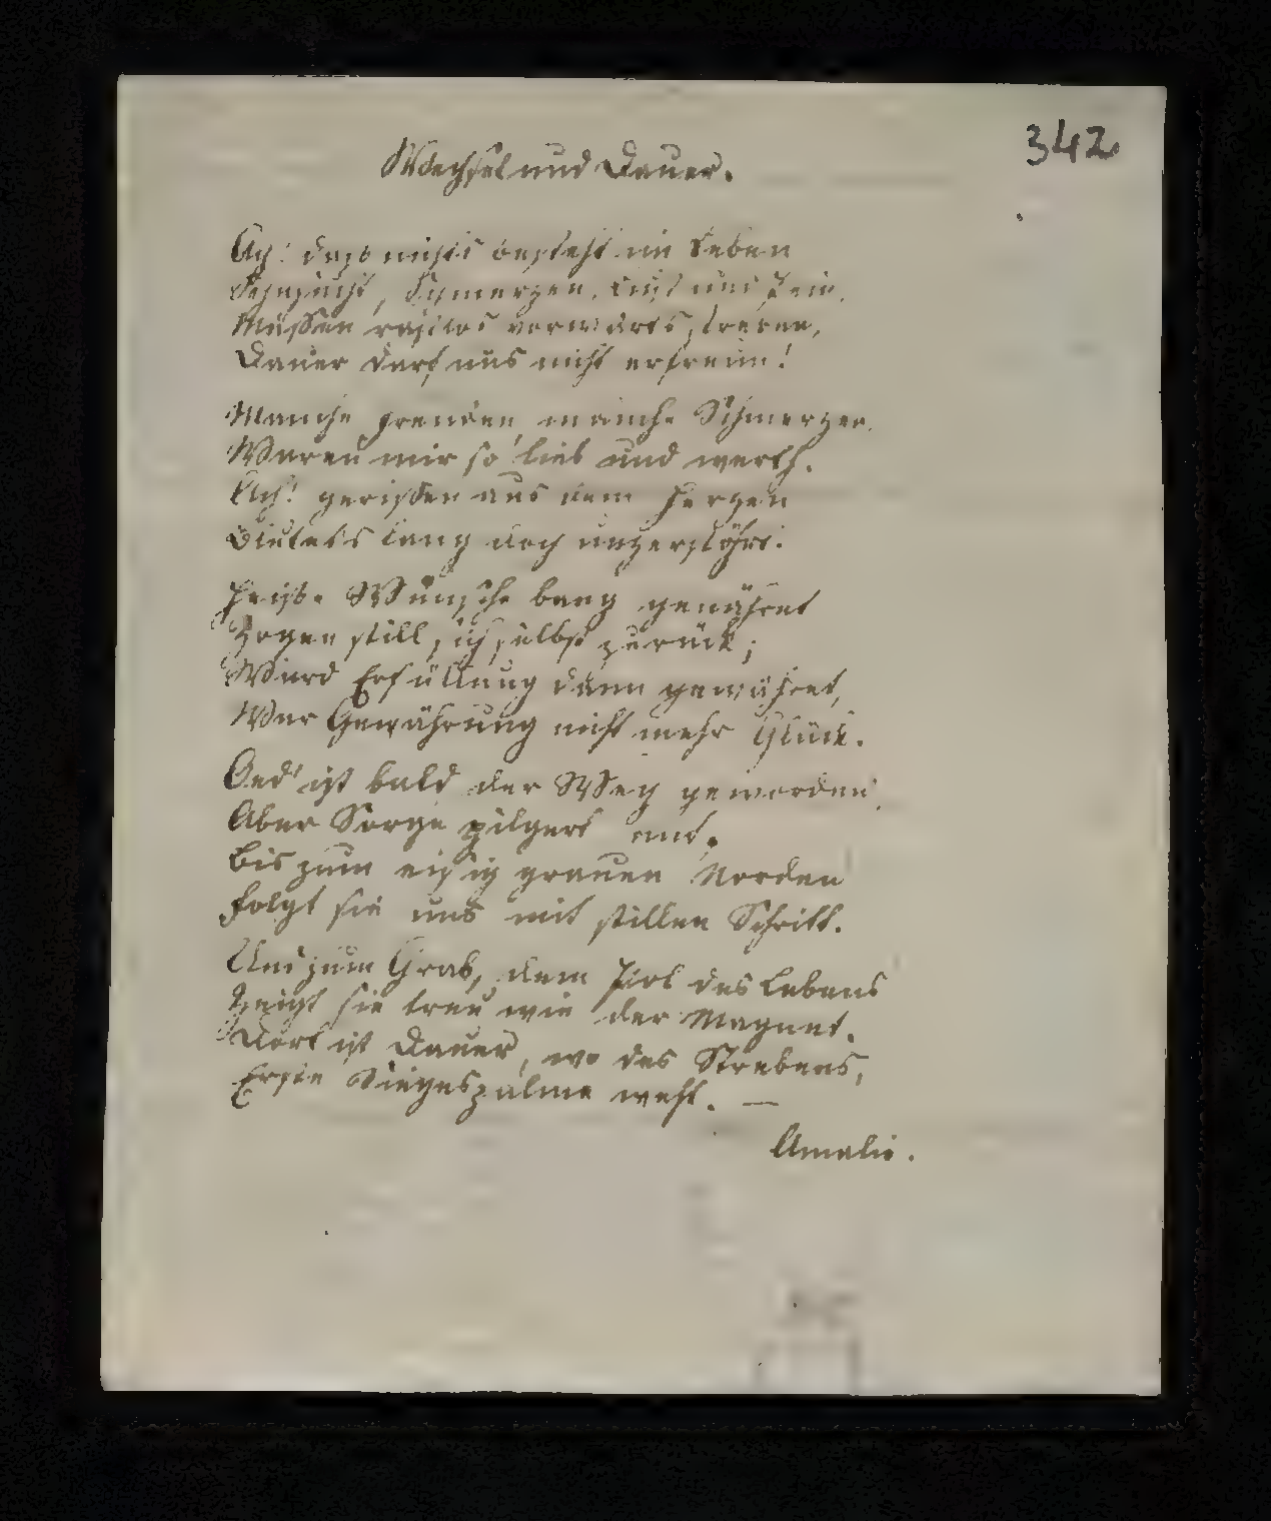 342
Wechsel und Dauer.
Ach! daß nichts besteht im Leben
Sehnsucht, Schmerzen, Lust und Pein,
Müssen rastlos vorwärts streben,
Dauer darf uns nicht erfreun!
Manche Freuden, manche Schmerzen
Waren mir so lieb und werth.
Ach! gerissen aus dem Herzen
Blutets lang noch unzerstöhrt.
Heiße Wünsche bang genähret
Zogen still sich selbst zurück;
Ward Erfüllung dann gewähret,
War Gewährung nicht mehr Glück.
Oed' ist bald der Weg geworden
Aber Sorge pilgert mit,
Bis zum eisig grauen Norden
Folgt sie uns mit stillen Schritt.
Und zum Grab, dem Ziel des Lebens
Zeigt sie treu wie der Magnet.
Dort ist Dauer, wo des Strebens,
Erste Siegespalme weht. —
Amalie.